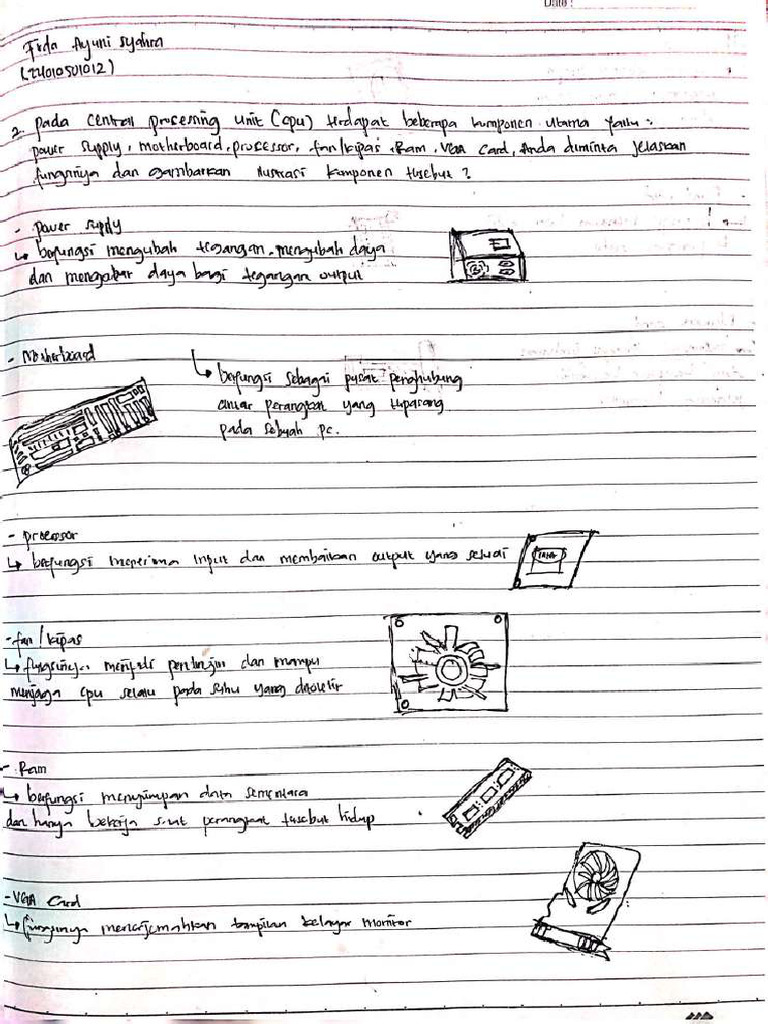 Date :
Firda Ayuni Syahra
(24010501012)
2. pada central processing unit (cpu) terdapat beberapa komponen utama yaitu :
power supply, motherboard, processor, fan/kipas, Ram, VGA Card, Anda diminta jelaskan
fungsinya dan gambarkan ilustrasi komponen tersebut ?
- power supply
↳ berfungsi mengubah tegangan, mengubah daya
dan mengatur daya bagi tegangan output
- Motherboard
↳ berfungsi sebagai pusat penghubung
antar perangkat yang terpasang
pada sebuah pc.
- processor
↳ berfungsi menerima input dan memberikan output yang sesuai
- fan/kipas
↳ fungsinya menjadi pendingin dan mampu
menjaga cpu selalu pada suhu yang
- Ram
↳ berfungsi menyimpan data sementara
dan hanya bekerja saat perangkat tersebut hidup
- VGA Card
↳ fungsinya menerjemahkan tampilan kelayar monitor